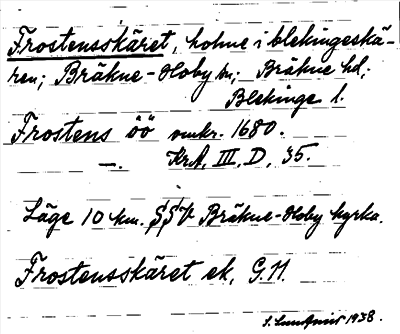 Frostensskäret, holme i blekingeskä-
ren; Bräkne-Hoby sn; Bräkne hd;
Blekinge l.
Frostens öö omkr. 1680.
—. KrA, III, D, 35.
Läge 10 km. SSV Bräkne-Hoby kyrka.
Frostensskäret ek. G.11.
S. 1938.